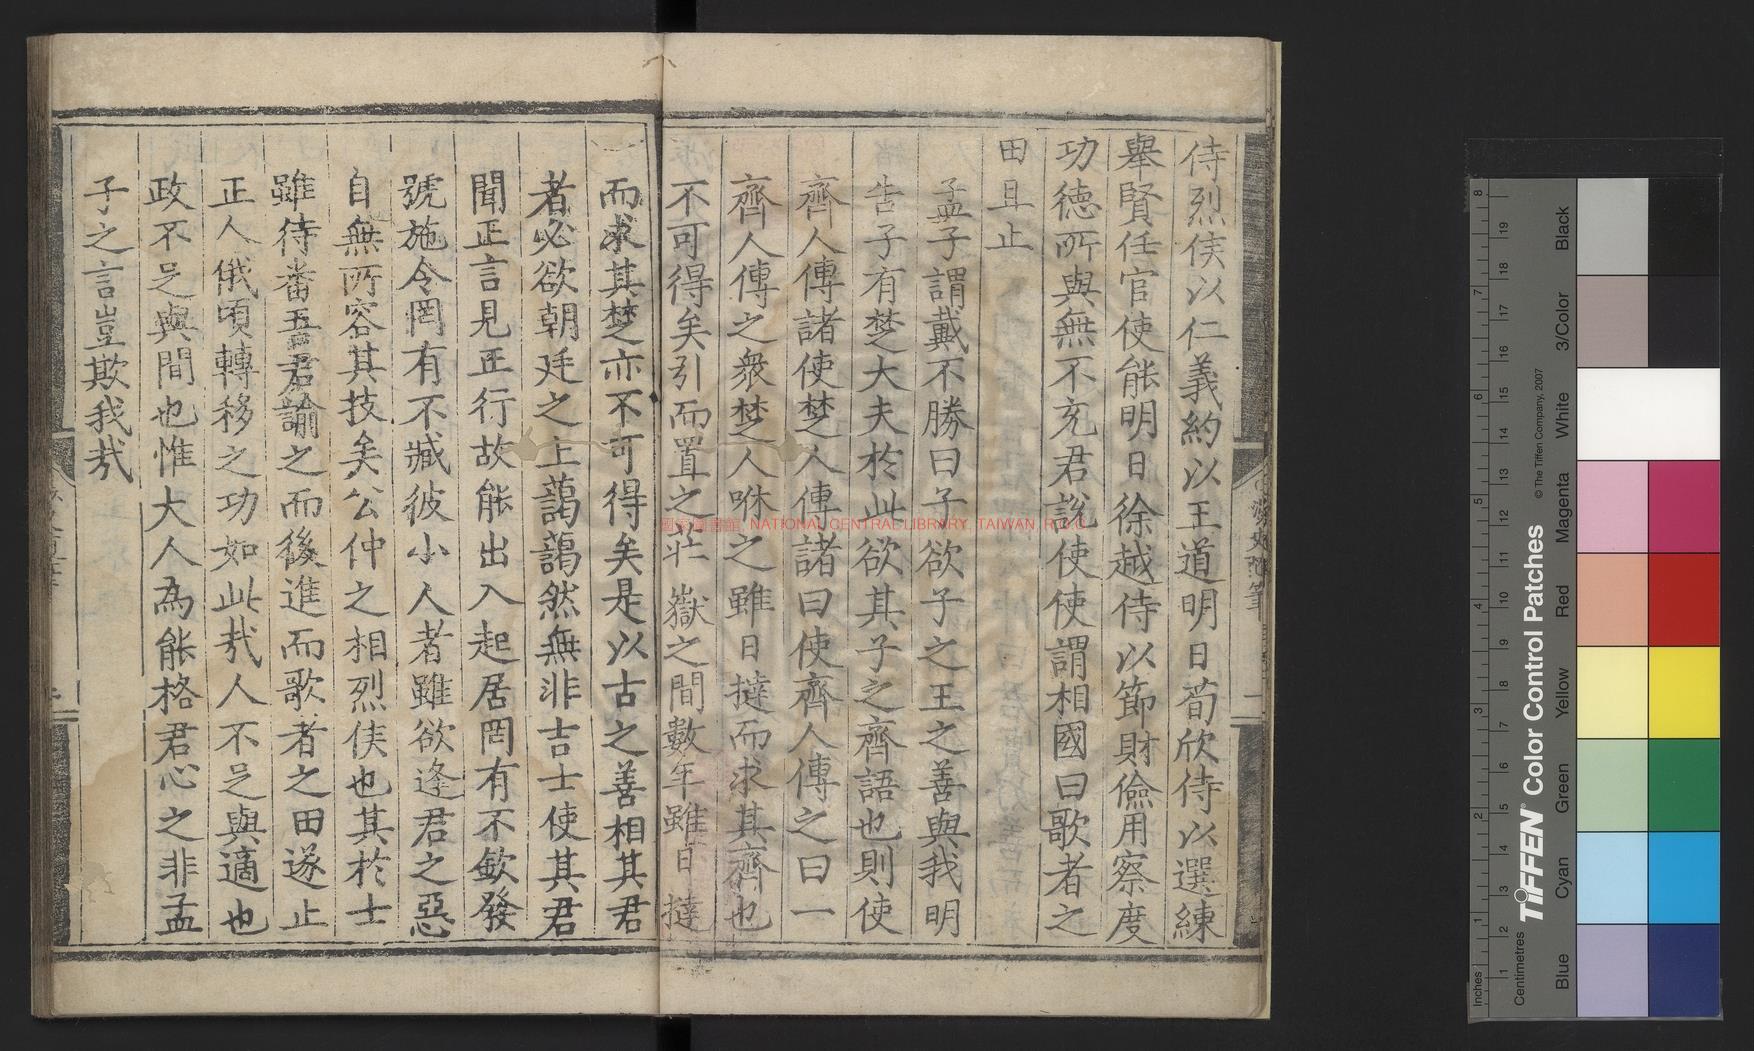 侍烈侯以仁義約以王道明日荀欣侍以選練
舉賢任官使能明日徐越侍以節財儉用察度
功德所與無不充君說使使謂相國曰歌者之
田且止
孟子謂戴不勝曰子欲子之王之善與我明
告子有楚大夫於此欲其子之齊語也則使
齊人傅諸使楚人傅諸曰使齊人傅之曰一
齊人傅之衆楚人咻之雖日撻而求其齊也
不可得矣引而置之莊嶽之間數年雖日撻
而求其楚亦不可得矣是以古之善相其君
者必欲朝廷之上藹藹然無非吉士使其君
聞正言見正行故能出入起居罔有不欽發
號施令罔有不臧彼小人者雖欲逢君之惡
自無所容其技矣公仲之相烈侯也其於士
雖待番吾君諭之而後進而歌者之田遂止
正人俄頃轉移之功如此㢤人不足與適也
政不足與間也惟大人為能格君心之非孟
子之言豈欺我㢤
國家圖書館, NATIONAL CENTRAL LIBRARY, TAIWAN, R.O.C.
TIFFEN® Color Control Patches
© The Tiffen Company, 2007
Blue Cyan Green Yellow Red Magenta White 3/Color Black
Inches 1 2 3 4 5 6 7 8
Centimetres 1 2 3 4 5 6 7 8 9 10 11 12 13 14 15 16 17 18 19